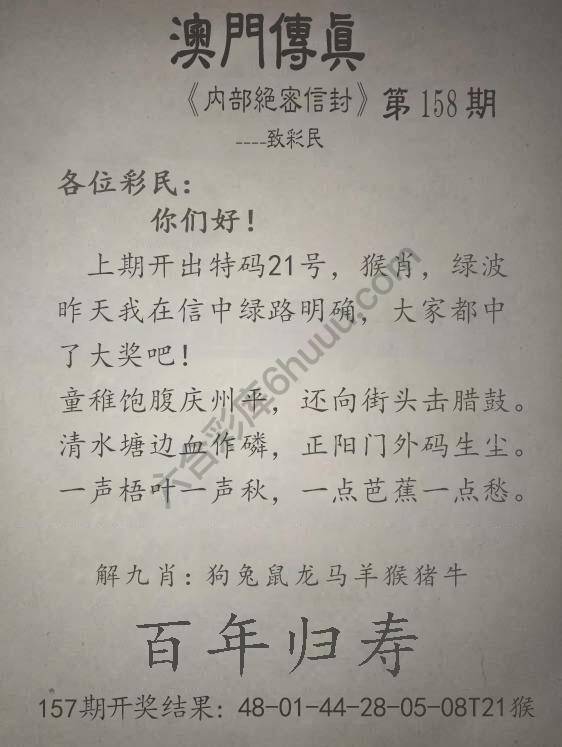 澳門傳眞
《内部絕密信封》第158期
----致彩民
各位彩民：
你们好！
上期开出特码21号，猴肖，绿波
昨天我在信中绿路明确，大家都中
了大奖吧！
童稚饱腹庆州平，还向街头击腊鼓。
清水塘边血作磷，正阳门外码生尘。
一声梧叶一声秋，一点芭蕉一点愁。
解九肖：狗兔鼠龙马羊猴猪牛
百年归寿
157期开奖结果：48-01-44-28-05-08T21猴
六合彩库6huuu.com